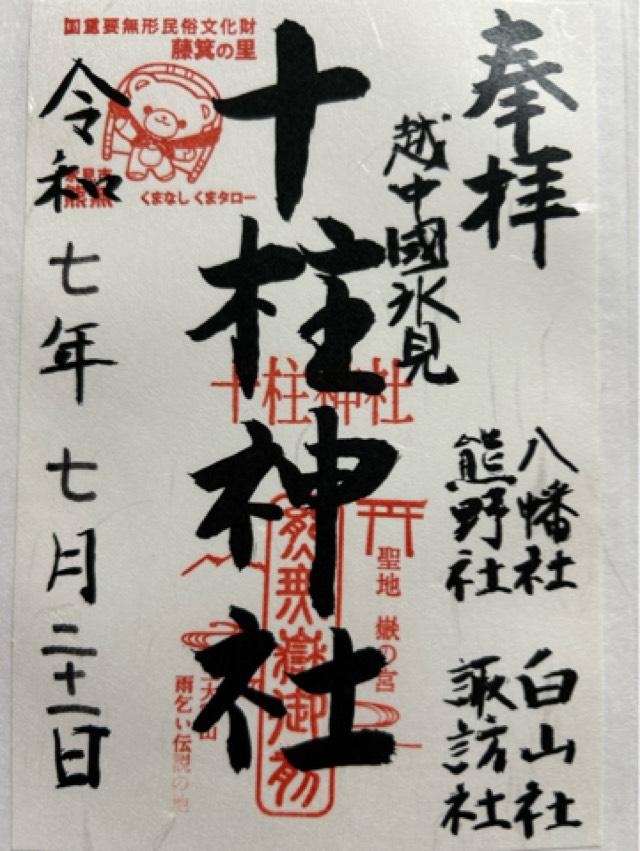 奉拝
越中國氷見
八幡社
熊野社
白山社
諏訪社
十柱神社
十柱神社
聖地 嶽の宮
嶽御前
雨乞い伝説の地
国重要無形民俗文化財
藤箕の里
くまなし くまタロー
令和七年七月二十一日